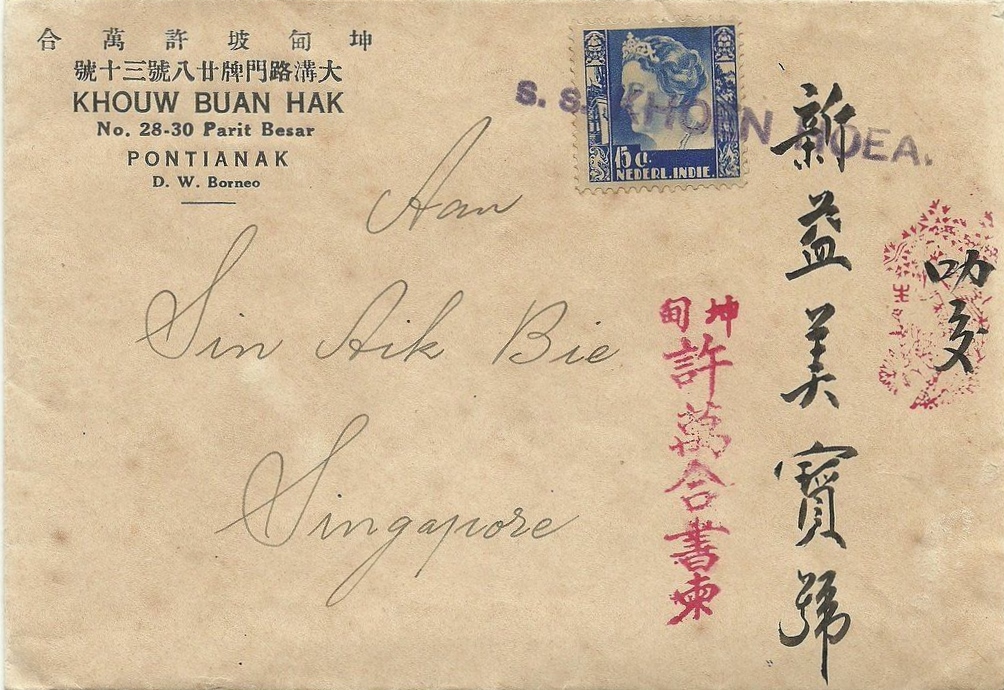 坤甸坡許萬合
大溝路門牌廿八號三十號
KHOUW BUAN HAK
No. 28-30 Parit Besar
PONTIANAK
D. W. Borneo
15 c.
NEDERL. INDIE
S. S. KHOEN HOEA.
Aan
Sin Aik Bie
Singapore
叻交
新益美寶號
坤甸
許萬合書柬